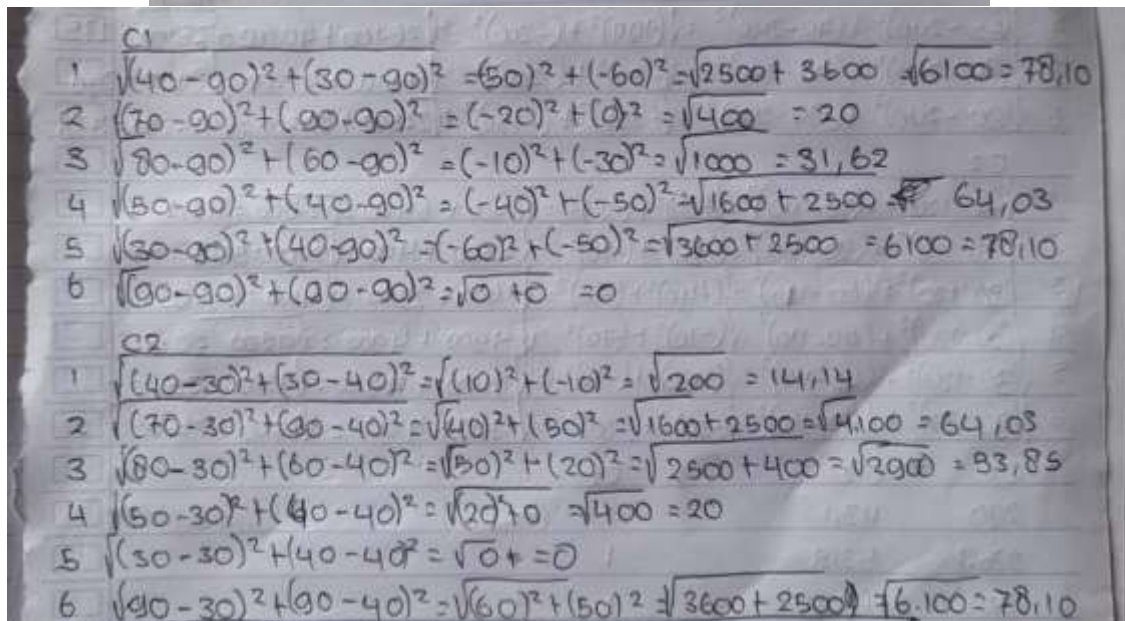 C1
1 √(40-90)²+(30-90)² =(50)²+(-60)²=√2500+3600 =√6100=78,10
2 √(70-90)²+(90-90)² =(-20)²+(0)² =√400 =20
3 √80-90)²+(60-90)² =(-10)²+(-30)²=√1000 =31,62
4 √(50-90)²+(40-90)² =(-40)²+(-50)²=√1600+2500 = 64,03
5 √(30-90)²+(40-90)² =(-60)²+(-50)²=√3600+2500 =6100=78,10
6 √(90-90)²+(90-90)²=√0+0 =0
C2
1 √(40-30)²+(30-40)²=√(10)²+(-10)²=√200 =14,14
2 √(70-30)²+(90-40)²=√(40)²+(50)²=√1600+2500=√4.100=64,03
3 √(80-30)²+(60-40)²=√50)²+(20)²=√2500+400=√2900=53,85
4 √(50-30)²+(40-40)²=√(20)²+0 =√400=20
5 √(30-30)²+(40-40)²=√0+=0
6 √(90-30)²+(90-40)²=√(60)²+(50)²=√3600+2500) =√6.100=78,10